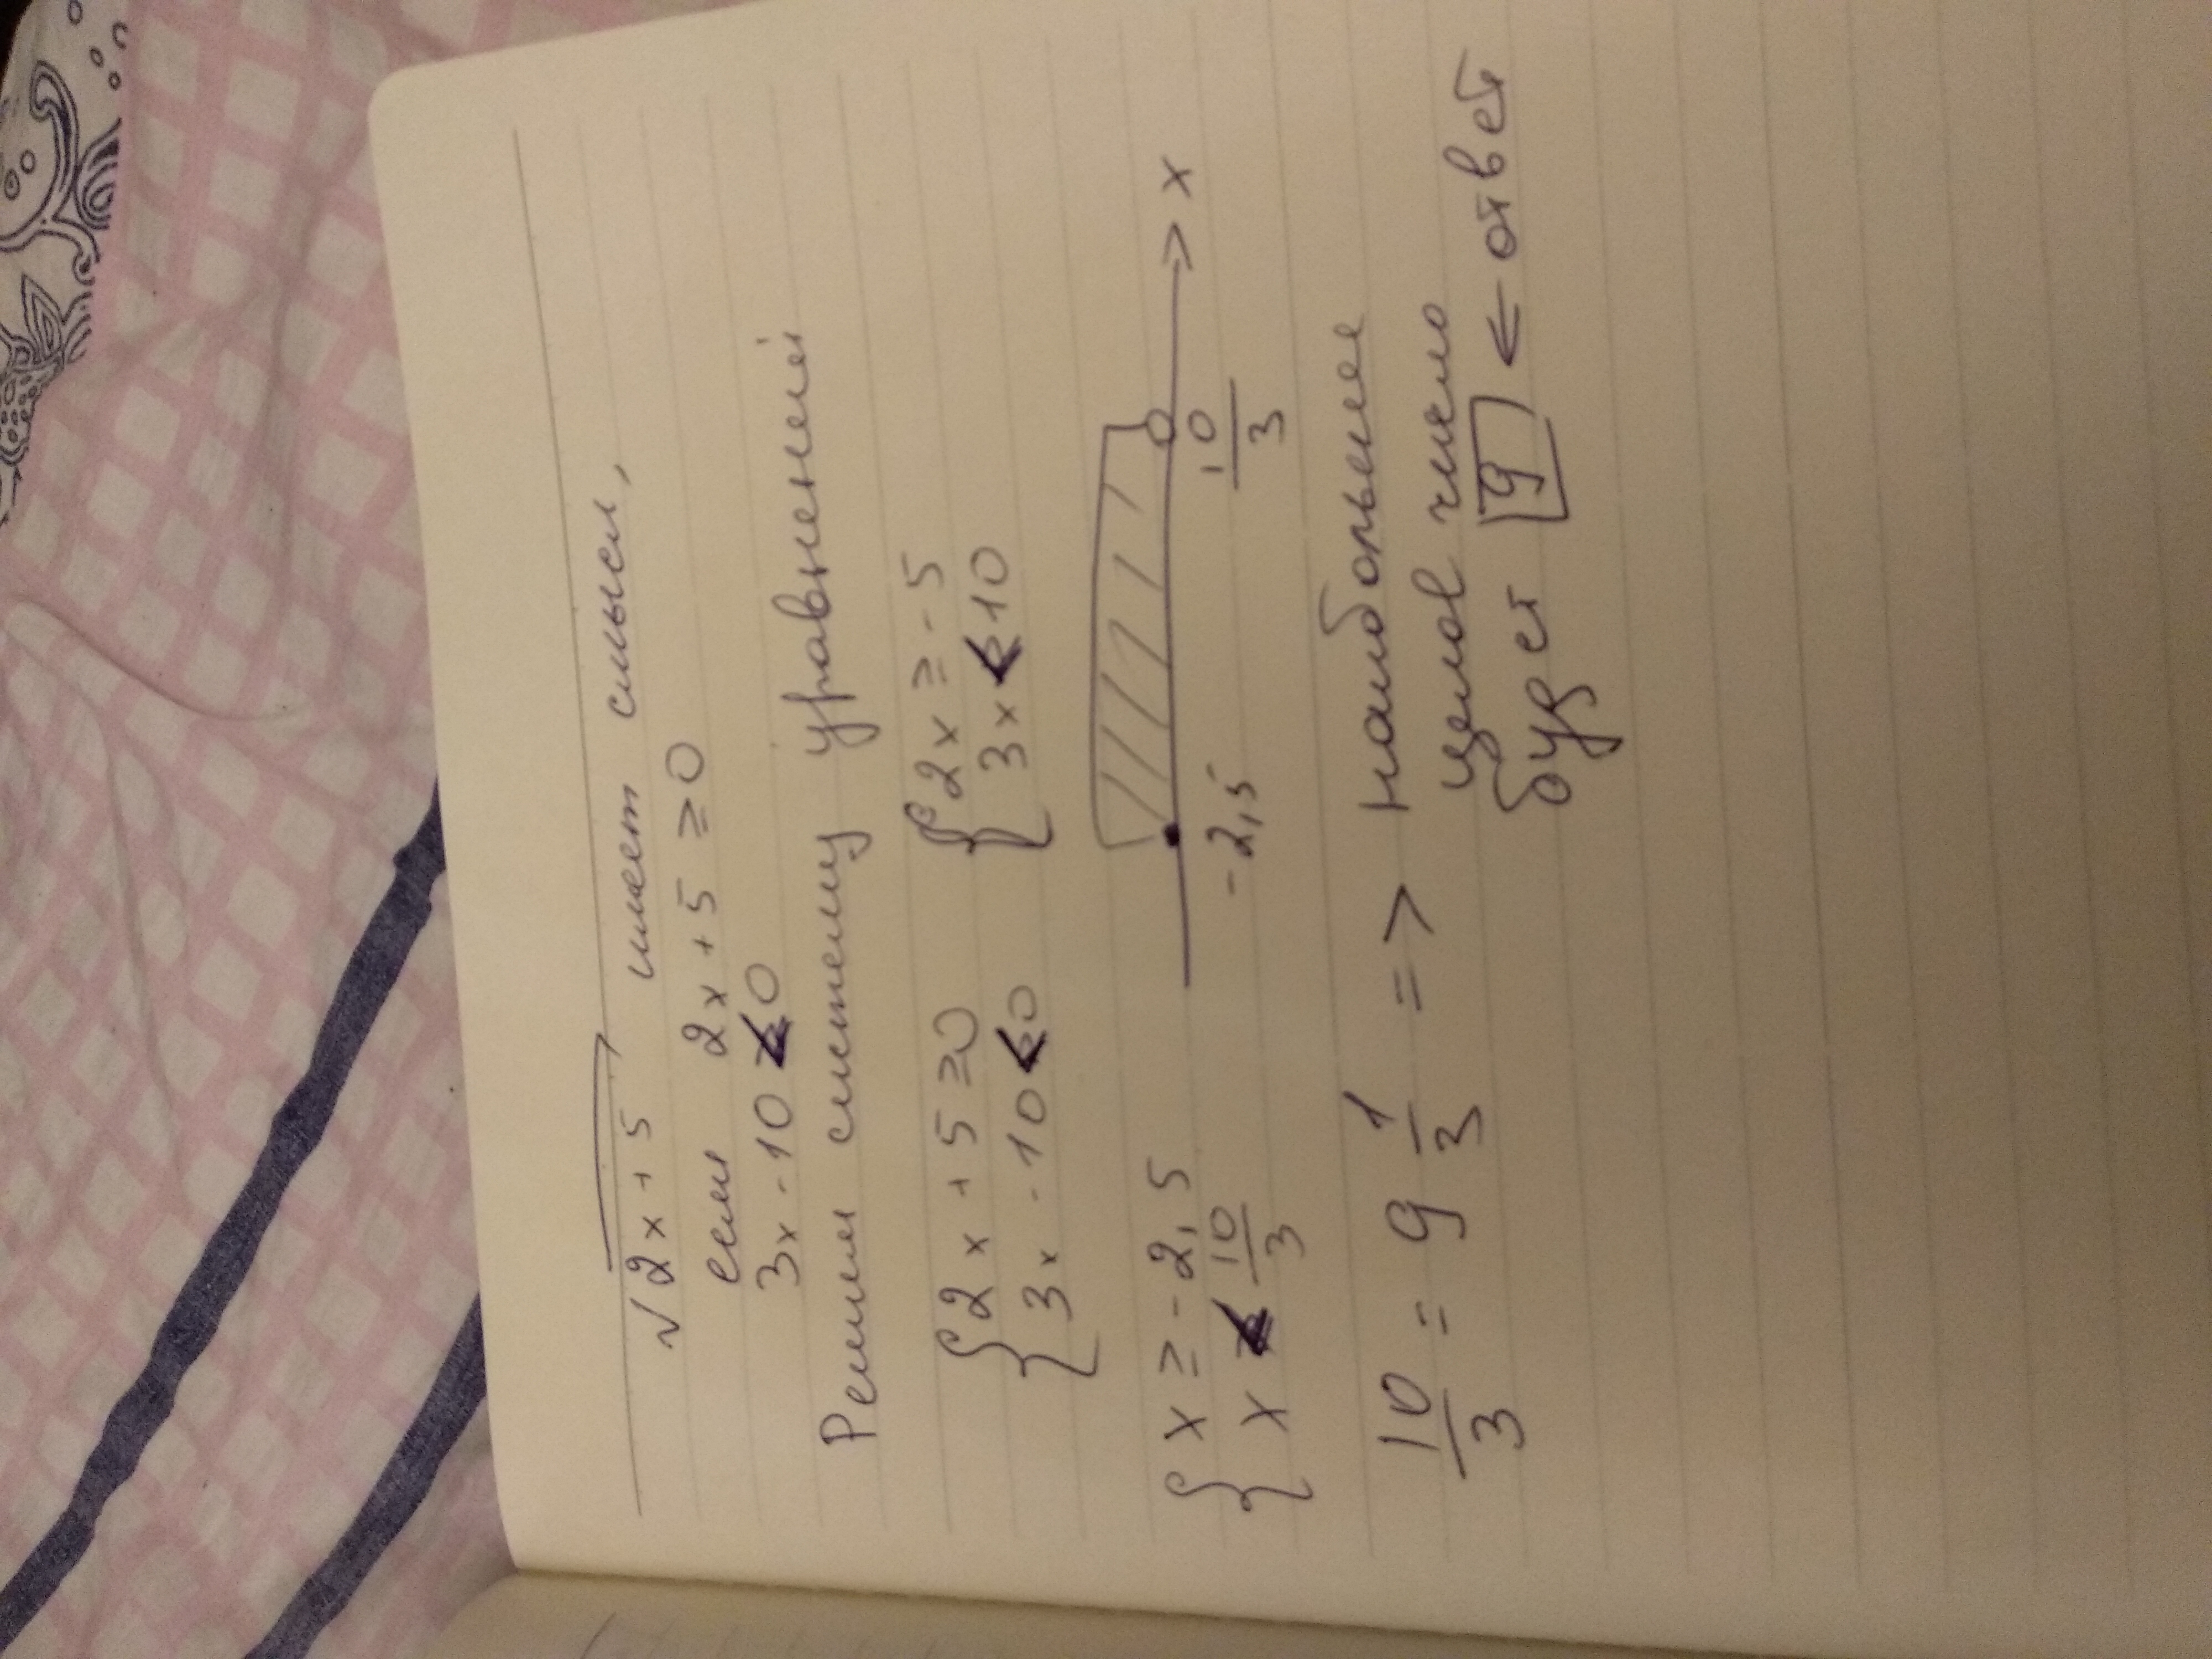 √2x+5 имеет смысл,
если 2x+5≥0
3x-10<0
Решим систему уравнений
{2x+5≥0 {2x≥-5
3x-10<0 3x<10
{x≥-2,5
x<10/3
-2,5 10/3 x
10/3 = 9 1/3 => наибольшее
целое число
будет 9 ← ответ